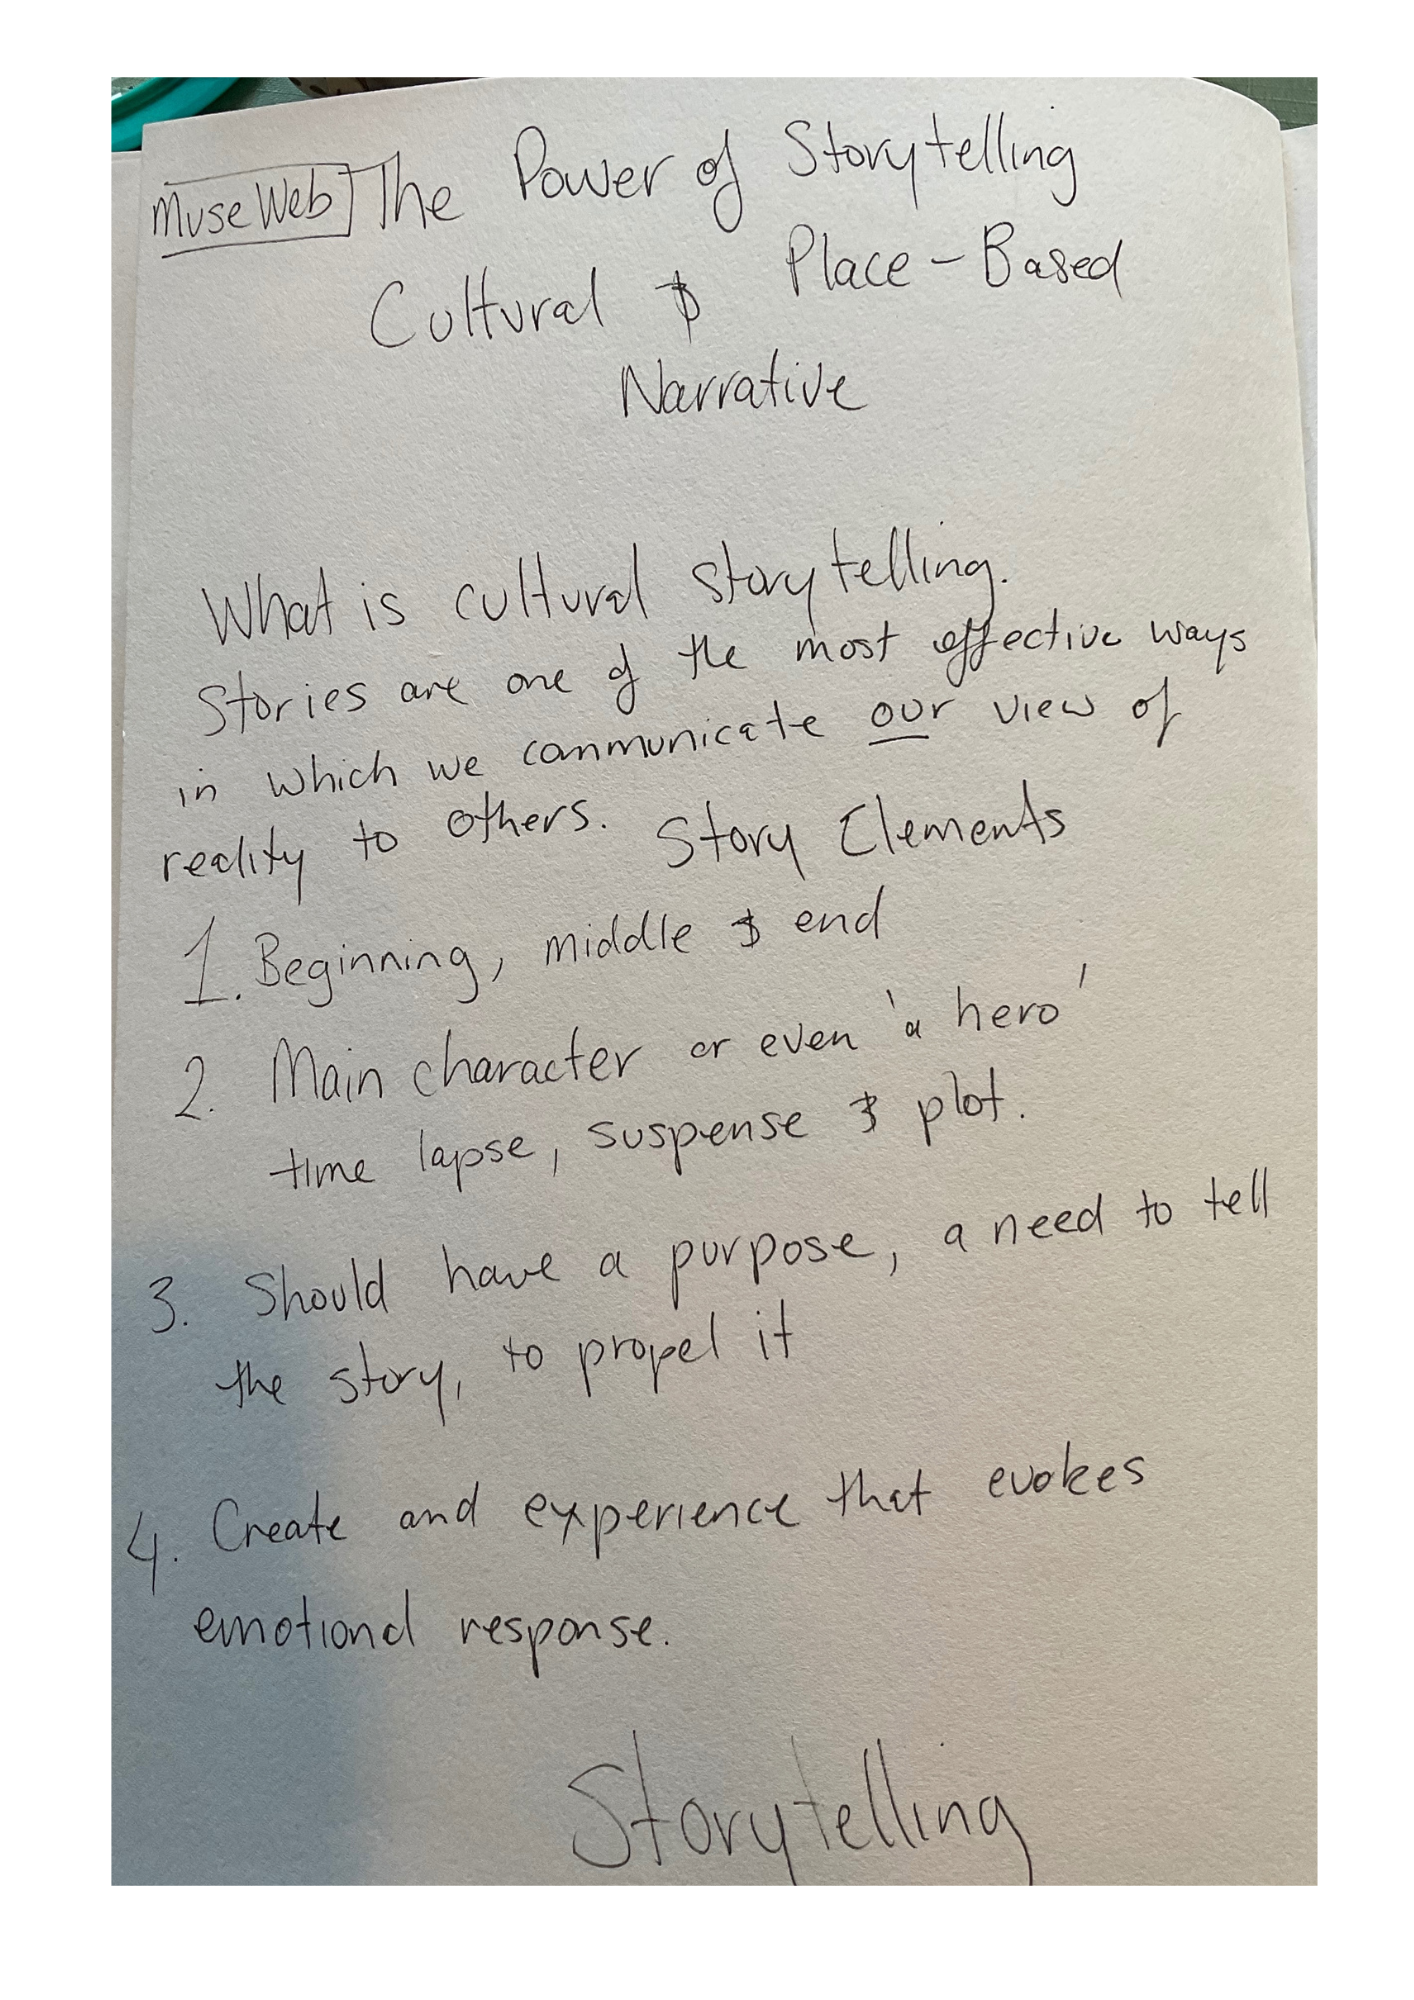 MuseWeb The Power of Storytelling
Cultural & Place-Based
Narrative
What is cultural storytelling.
Stories are one of the most effective ways
in which we communicate our view of
reality to others. Story Elements
1. Beginning, middle & end
2. Main character or even 'a hero'
time lapse, suspense & plot.
3. Should have a purpose, a need to tell
the story, to propel it
4. Create and experience that evokes
emotional response.
Storytelling